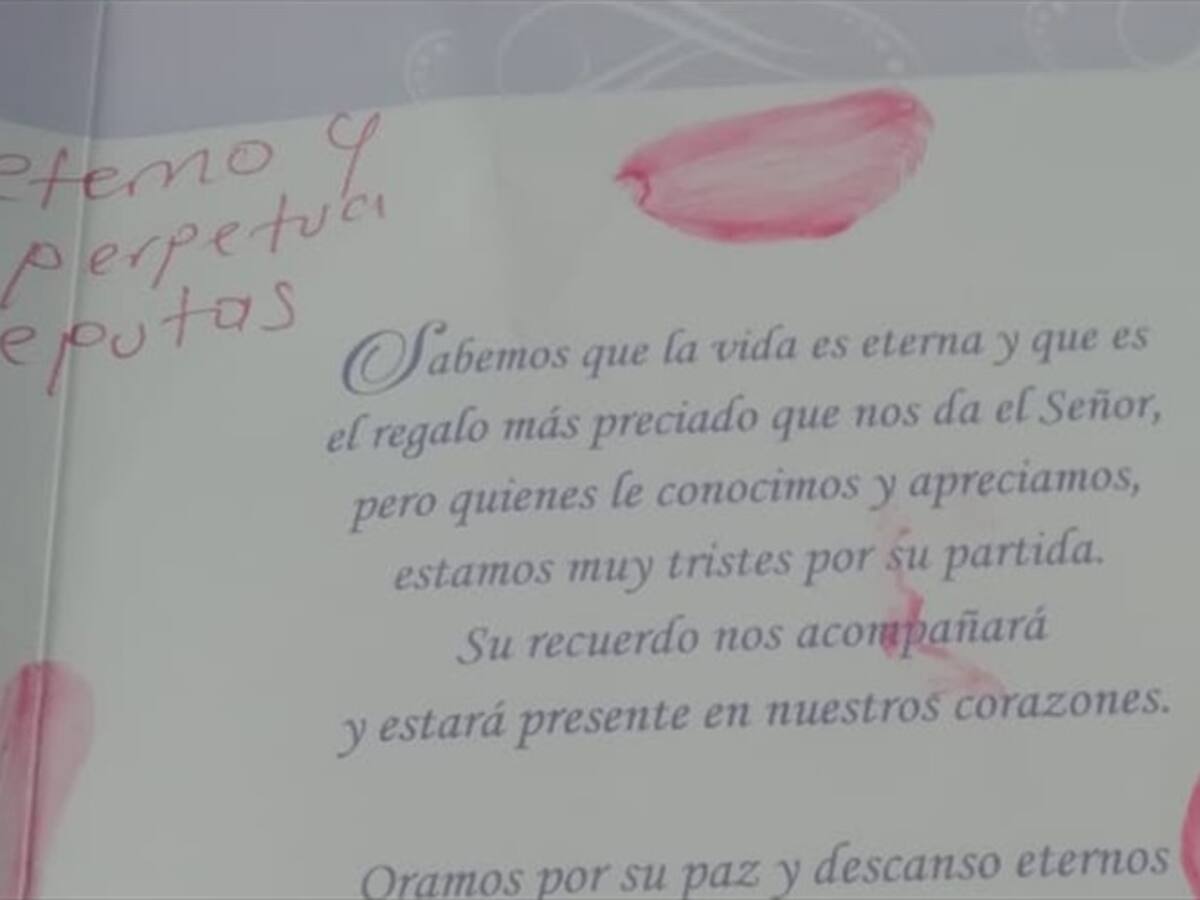 eterno y
perpetua
eputas
Sabemos que la vida es eterna y que es
el regalo más preciado que nos da el Señor,
pero quienes le conocimos y apreciamos,
estamos muy tristes por su partida.
Su recuerdo nos acompañará
y estará presente en nuestros corazones.
Oramos por su paz y descanso eternos